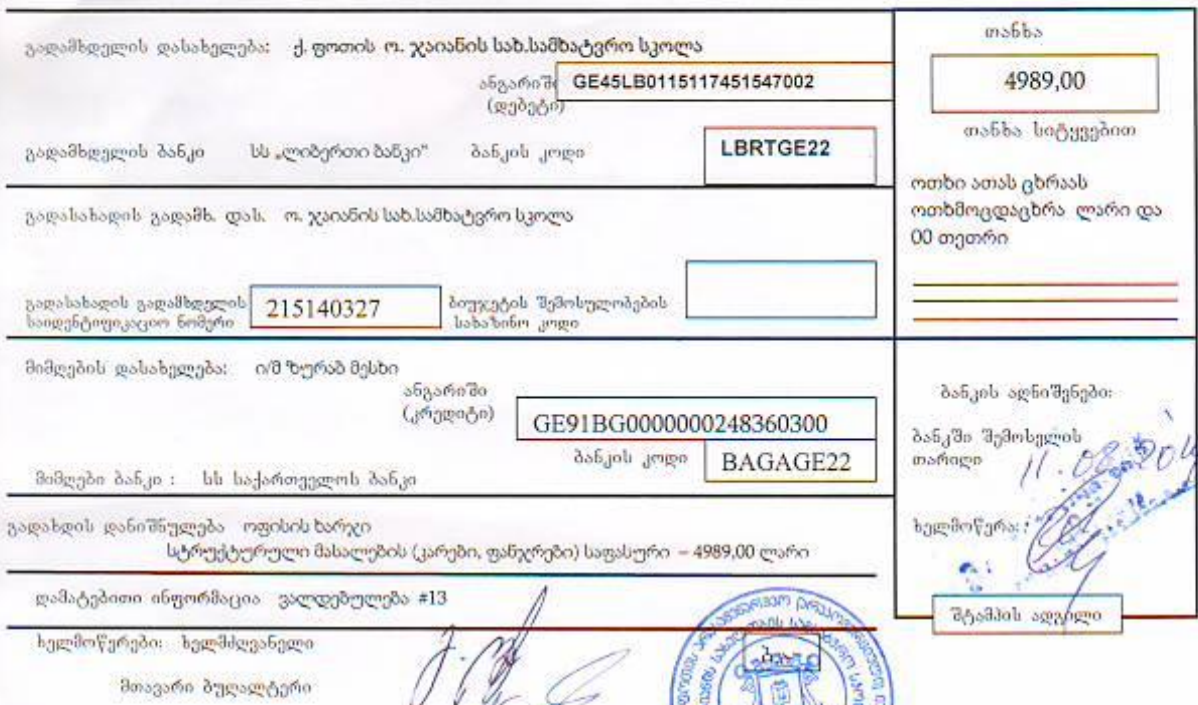 გადამხდელის დასახელება: ქ. ფოთის ო. ჯაიანის სახ.სამხატვრო სკოლა
ანგარიში GE45LB0115117451547002
(დებეტი)
გადამხდელის ბანკი სს „ლიბერთი ბანკი“ ბანკის კოდი LBRTGE22
გადასახადის გადამხ. დას. ო. ჯაიანის სახ.სამხატვრო სკოლა
გადასახადის გადამხდელის 215140327 ბიუჯეტის შემოსულობების
საიდენტიფიკაციო ნომერი სახაზინო კოდი
მიმღების დასახელება: ი/მ ზურაბ მესხი
ანგარიში
(კრედიტი) GE91BG0000000248360300
ბანკის კოდი BAGAGE22
მიმღები ბანკი : სს საქართველოს ბანკი
გადახდის დანიშნულება ოფისის ხარჯი
სტრუქტურული მასალების (კარები, ფანჯრები) საფასური – 4989,00 ლარი
დამატებითი ინფორმაცია ვალდებულება #13
ხელმოწერები: ხელმძღვანელი
მთავარი ბუღალტერი
თანხა
4989,00
თანხა სიტყვებით
ოთხი ათას ცხრაას
ოთხმოცდაცხრა ლარი და
00 თეთრი
ბანკის აღნიშვნები:
ბანკში შემოსვლის
თარიღი
ხელმოწერა:
შტამპის ადგილი